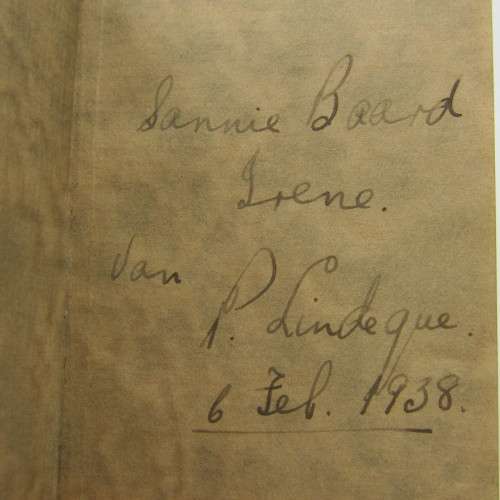 Sannie Baard
Irene.
Van
P. Lindeque.
6 Feb. 1938.